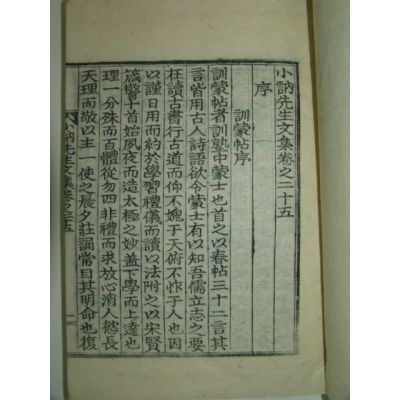 小訥先生文集卷之二十五
序
訓蒙帖序
訓蒙帖者訓塾中蒙士也首之以春帖三十二言其
言皆用古人詩語欲今蒙士有以知吾儒立志之要
在讀古書行古道而仰不媿于天俯不怍于人也次
以謹日用而約於學習禮儀而讀以法附之以宋賢
箴警十首始夙夜而造太極之妙蓋下學而上達也
理一分殊而百體從勿四非禮而求放心消人慾長
天理而敬以主一使之晨夕莊誦常目其明命也復
小訥先生文集卷之二十五
一